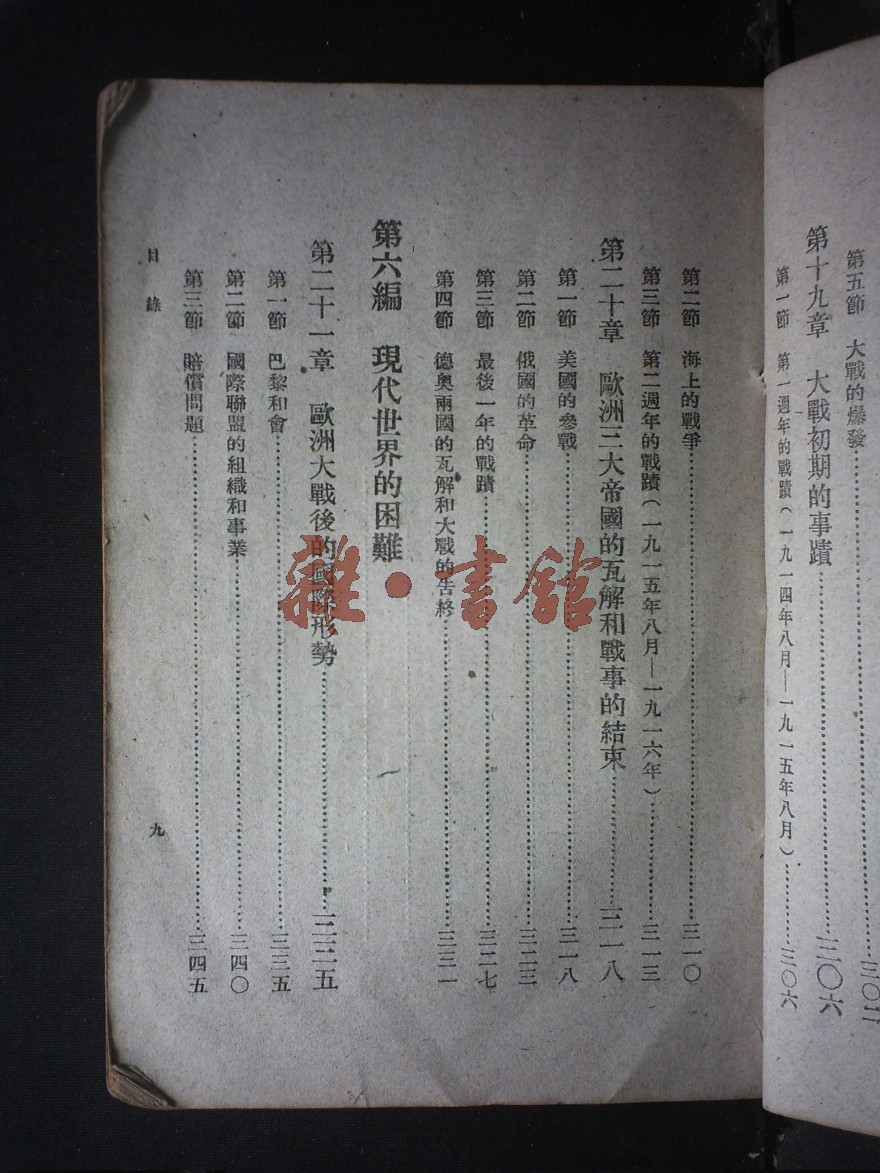 第五節　大戰的爆發……三〇二
第十九章　大戰初期的事蹟……三〇六
第一節　第一週年的戰蹟(一九一四年八月—一九一五年八月)……三〇六
第二節　海上的戰爭……三一〇
第三節　第二週年的戰蹟(一九一五年八月—一九一六年)……三一三
第二十章　歐洲三大帝國的瓦解和戰事的結束……三一八
第一節　美國的參戰……三一八
第二節　俄國的革命……三二三
第三節　最後一年的戰蹟……三二七
第四節　德奧兩國的瓦解和大戰的告終……三三一
第六編　現代世界的困難
第二十一章　歐洲大戰後的國際形勢……三三五
第一節　巴黎和會……三三五
第二節　國際聯盟的組織和事業……三四〇
第三節　賠償問題……三四五
目錄
九
雜·書館